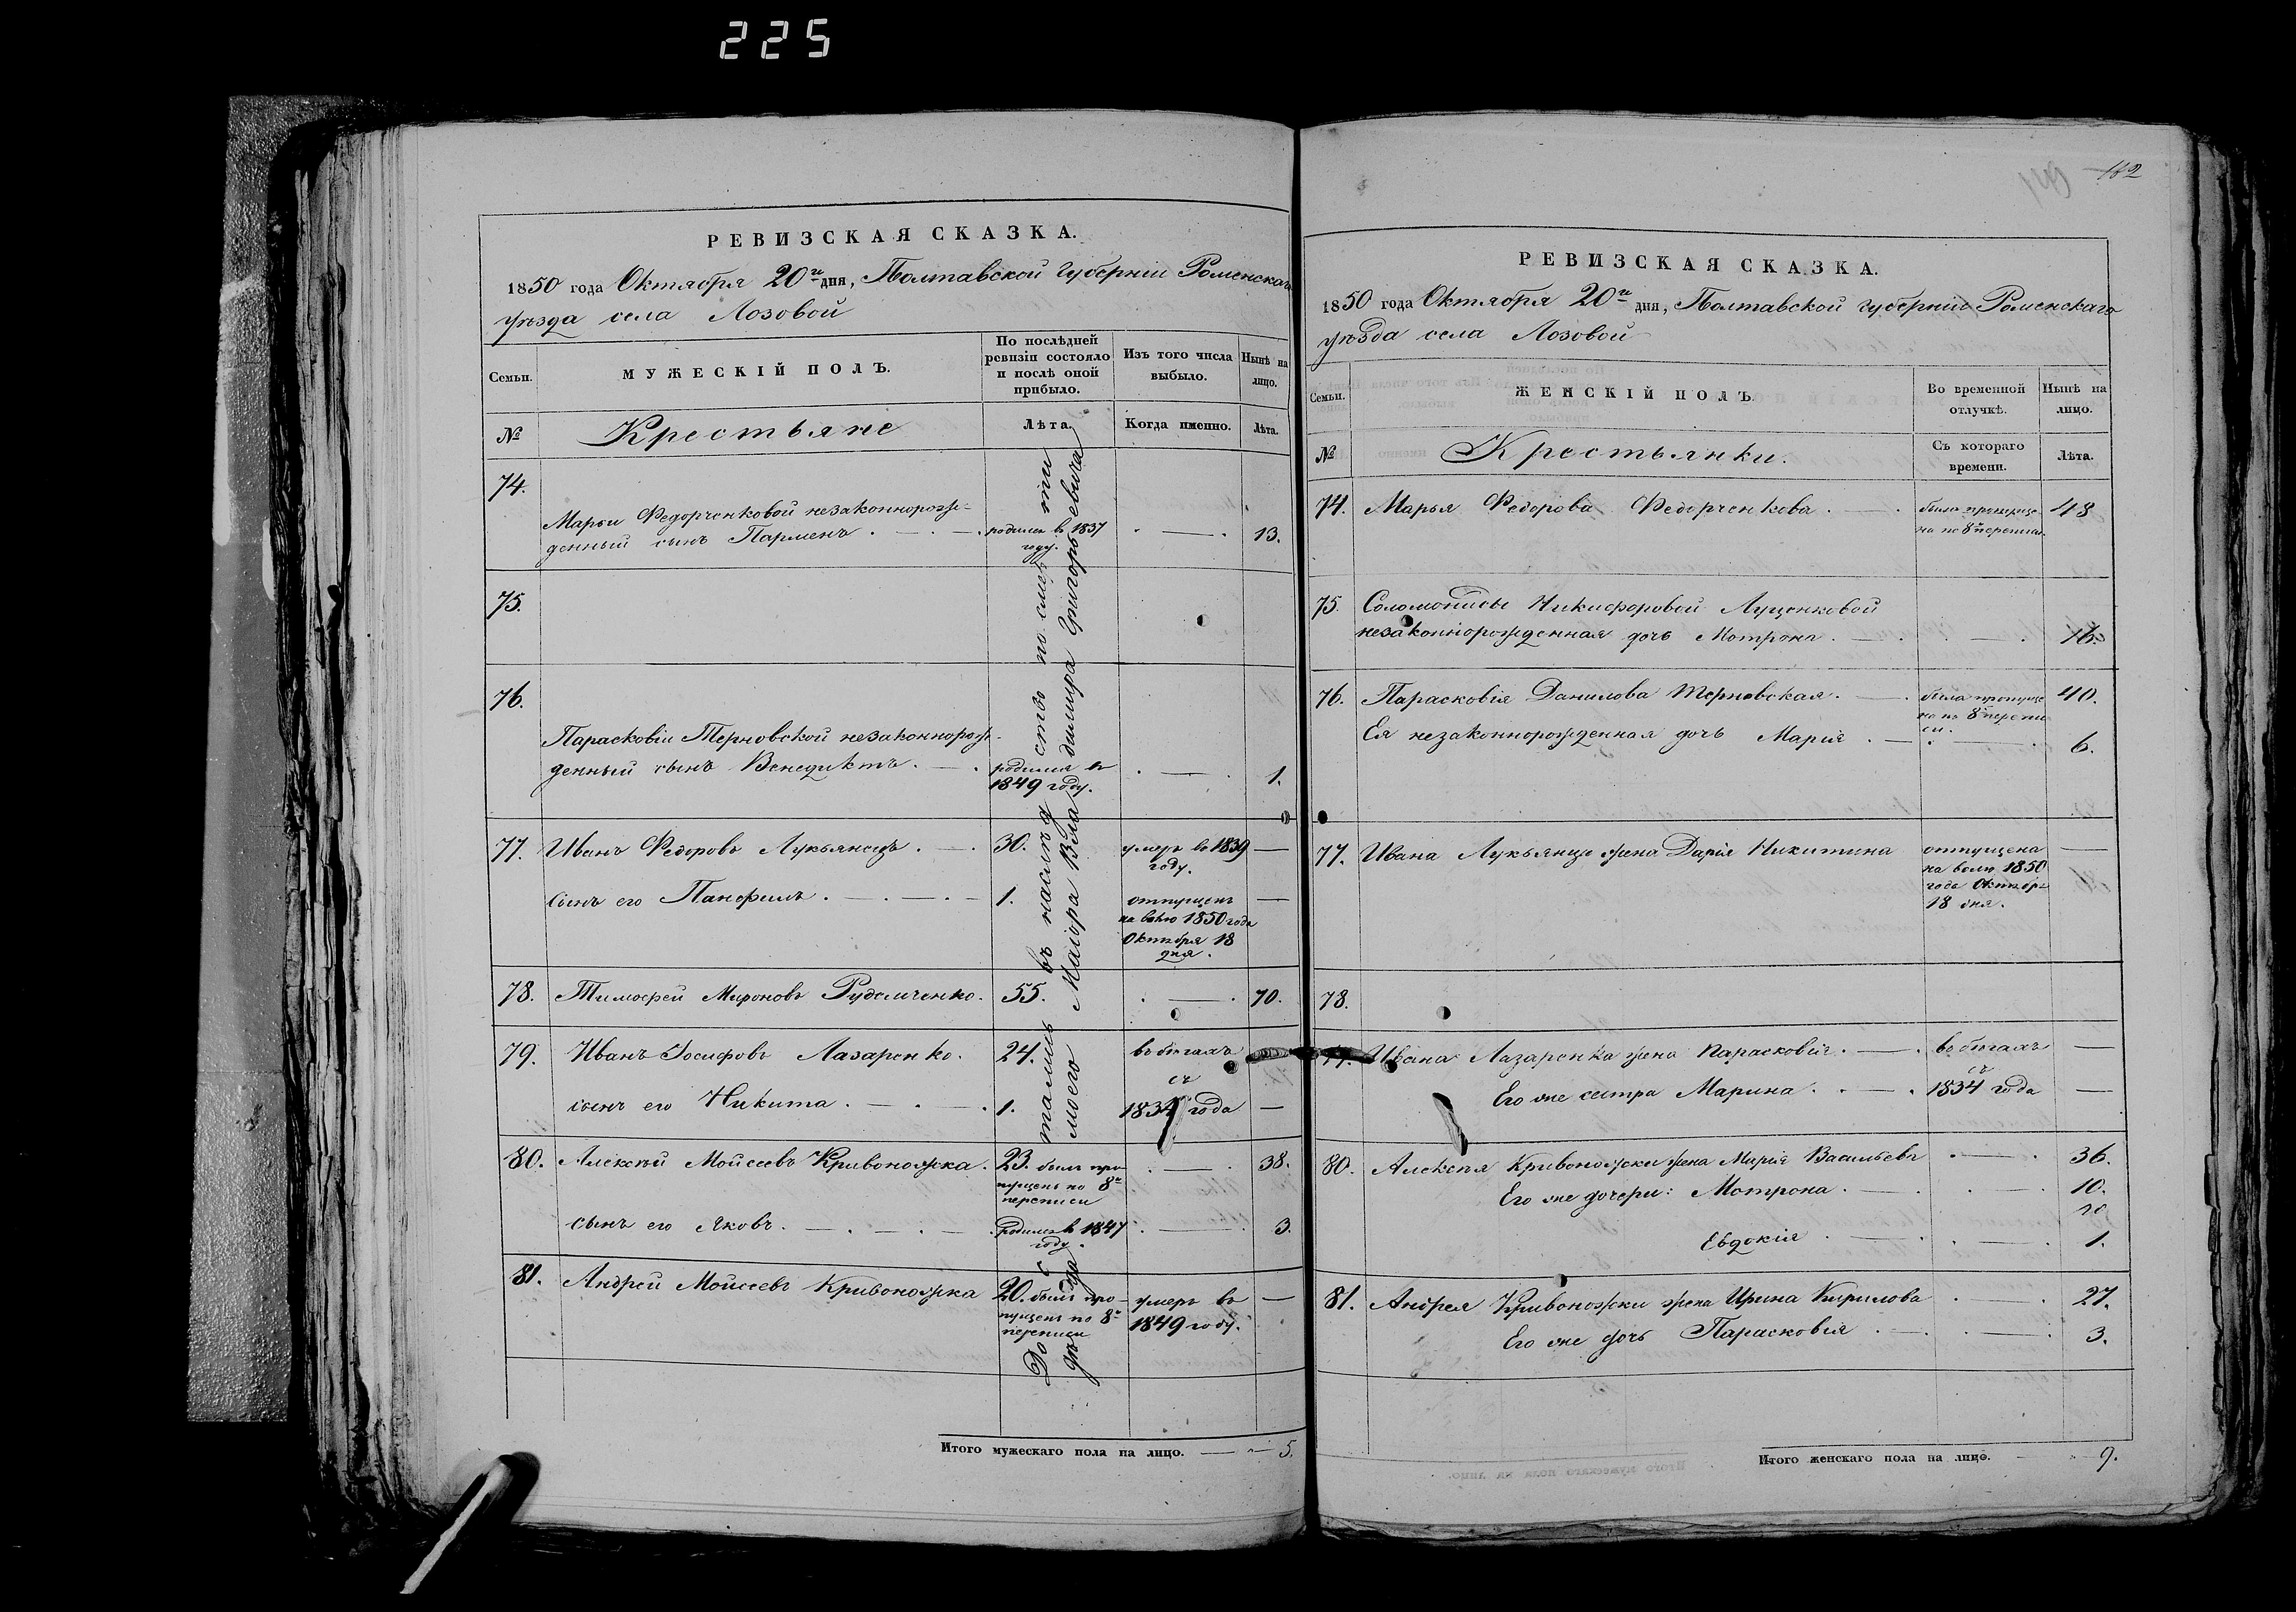 225
РЕВИЗСКАЯ СКАЗКА.
1850 года Октября 20го дня, Полтавской губерніи Роменскаго
уѣзда села Лозовой
Семьи.
МУЖЕСКІЙ ПОЛЪ.
По послѣдней
ревизіи состояло
и послѣ оной
прибыло.
Изъ того числа
выбыло.
Нынѣ на
лицо.
№
Крестьяне
Лѣта.
Когда именно.
Лѣта.
74.
Марьи Федорченковой незаконнорож-
денный сынъ Парменъ . — . — .
родился въ 1837
году.
. — .
13.
75.
76.
Парасковіи Терновской незаконнорож-
денный сынъ Венедиктъ . — .
родился въ
1849 году.
. — .
1.
77. Иванъ Федоровъ Лукьянецъ . — . 30. умеръ въ 1839 —
году.
Сынъ его Панфилъ . — . — . — 1. отпущенъ —
на волю 1850 года
Октября 18
дня.
78. Тимофей Мироновъ Рудемченко. 55. . — . 70.
79. Иванъ Іосифовъ Лазаренко. 24. въ бѣгахъ
съ
сынъ его Никита . — . — . 1. 1834 года —
80. Алексѣй Моисеевъ Кривоножка. 23. былъ про- . — . 38.
пущенъ по 8й
переписи
сынъ его Яковъ. — . — . — . родился въ 1847 . — . 3.
году.
81. Андрей Моисеевъ Кривоножка 20. былъ про- умеръ въ —
пущенъ по 8й 1849 году.
переписи
Достались въ наслѣдство по смерти
дѣда моего Маіора Владимира Григорьевича
Итого мужескаго пола на лицо. — 5.
182
РЕВИЗСКАЯ СКАЗКА.
1850 года Октября 20го дня, Полтавской губерніи Роменскаго
уѣзда села Лозовой
Семьи.
ЖЕНСКІЙ ПОЛЪ.
Во временной
отлучкѣ.
Нынѣ на
лицо.
№
Крестьянки.
Съ котораго
времени.
Лѣта.
74. Марья Федорова Федорченкова . — . была пропуще- 48
на по 8й переписи.
75. Соломониды Никифоровой Луценковой
незаконнорожденная дочь Мотрона . — . . — . 16.
76. Парасковія Данилова Терновская. — . была пропуще- 40.
на по 8й перепи-
си.
Ея незаконнорожденная дочь Марія . — . — . 6.
77. Ивана Лукьянца жена Дарія Никитина отпущена —
на волю 1850
года Октября
18 дня.
78.
79. Ивана Лазаренка жена Парасковія. — . въ бѣгахъ —
съ
Его же сестра Марина . . — . 1834 года —
80. Алексѣя Кривоножки жена Марія Васильева . — . 36.
Его же дочери: Мотрона . — . . — . 10.
Евдокія . — . . — . 1.
81. Андрея Кривоножки жена Ирина Кирилова . — . 27.
Его же дочь Парасковія . — . . — . 3.
Итого женскаго пола на лицо. — 9.